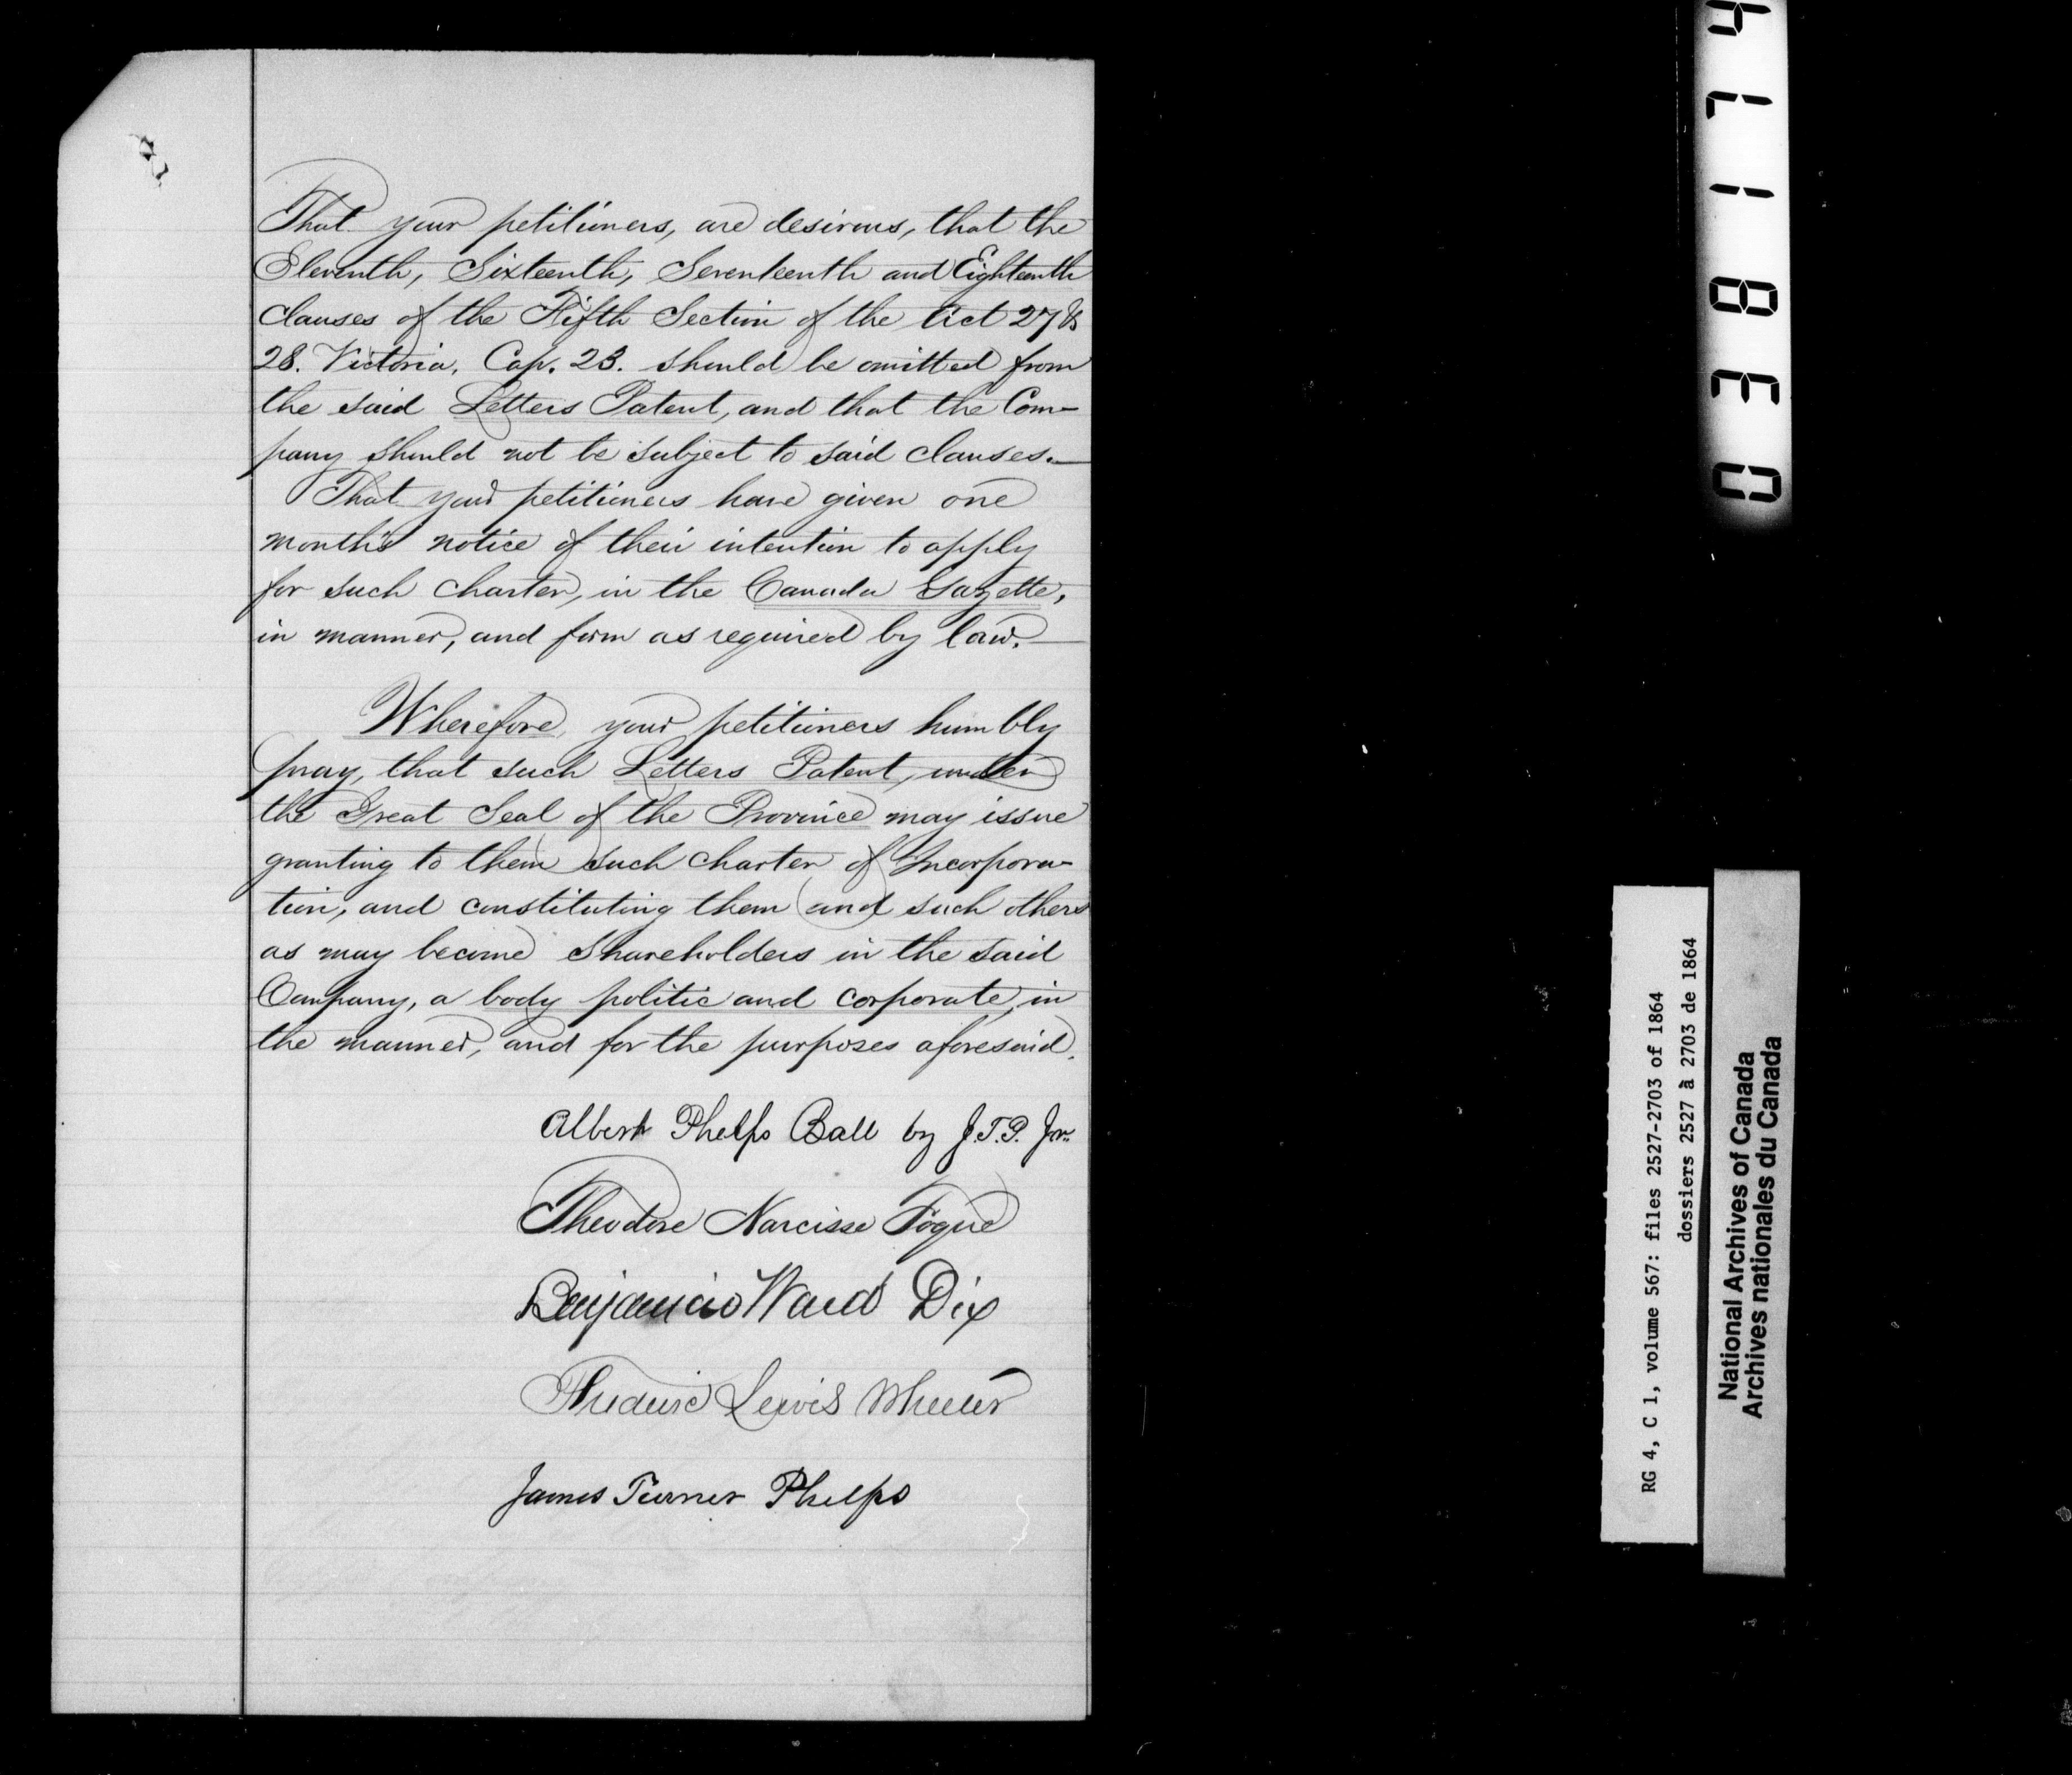 That your petitioners, are desirous, that the
Eleventh, Sixteenth, Seventeenth and Eighteenth
clauses of the Fifth Section of the Act 27 &
28. Victoria, Cap. 23. should be omitted from
the said Letters Patent, and that the Com-
pany should not be subject to said clauses.—
That your petitioners have given one
month's notice of their intention to apply
for such charter, in the Canada Gazette,
in manner, and form as required by law.—
Wherefore, your petitioners humbly
pray, that such Letters Patent, under
the Great Seal of the Province may issue
granting to them such charter of Incorpora-
tion, and constituting them and such others
as may become shareholders in the said
Company, a body politic and corporate, in
the manner, and for the purposes aforesaid.
Albert Phelps Ball by J.T.P. Jnr.
Theodore Narcisse Fogue
Benjamin Ward Dix
Frederic Lewis Wheeler
James Turner Phelps
038174
RG 4, C 1, volume 567: files 2527-2703 of 1864
dossiers 2527 à 2703 de 1864
National Archives of Canada
Archives nationales du Canada